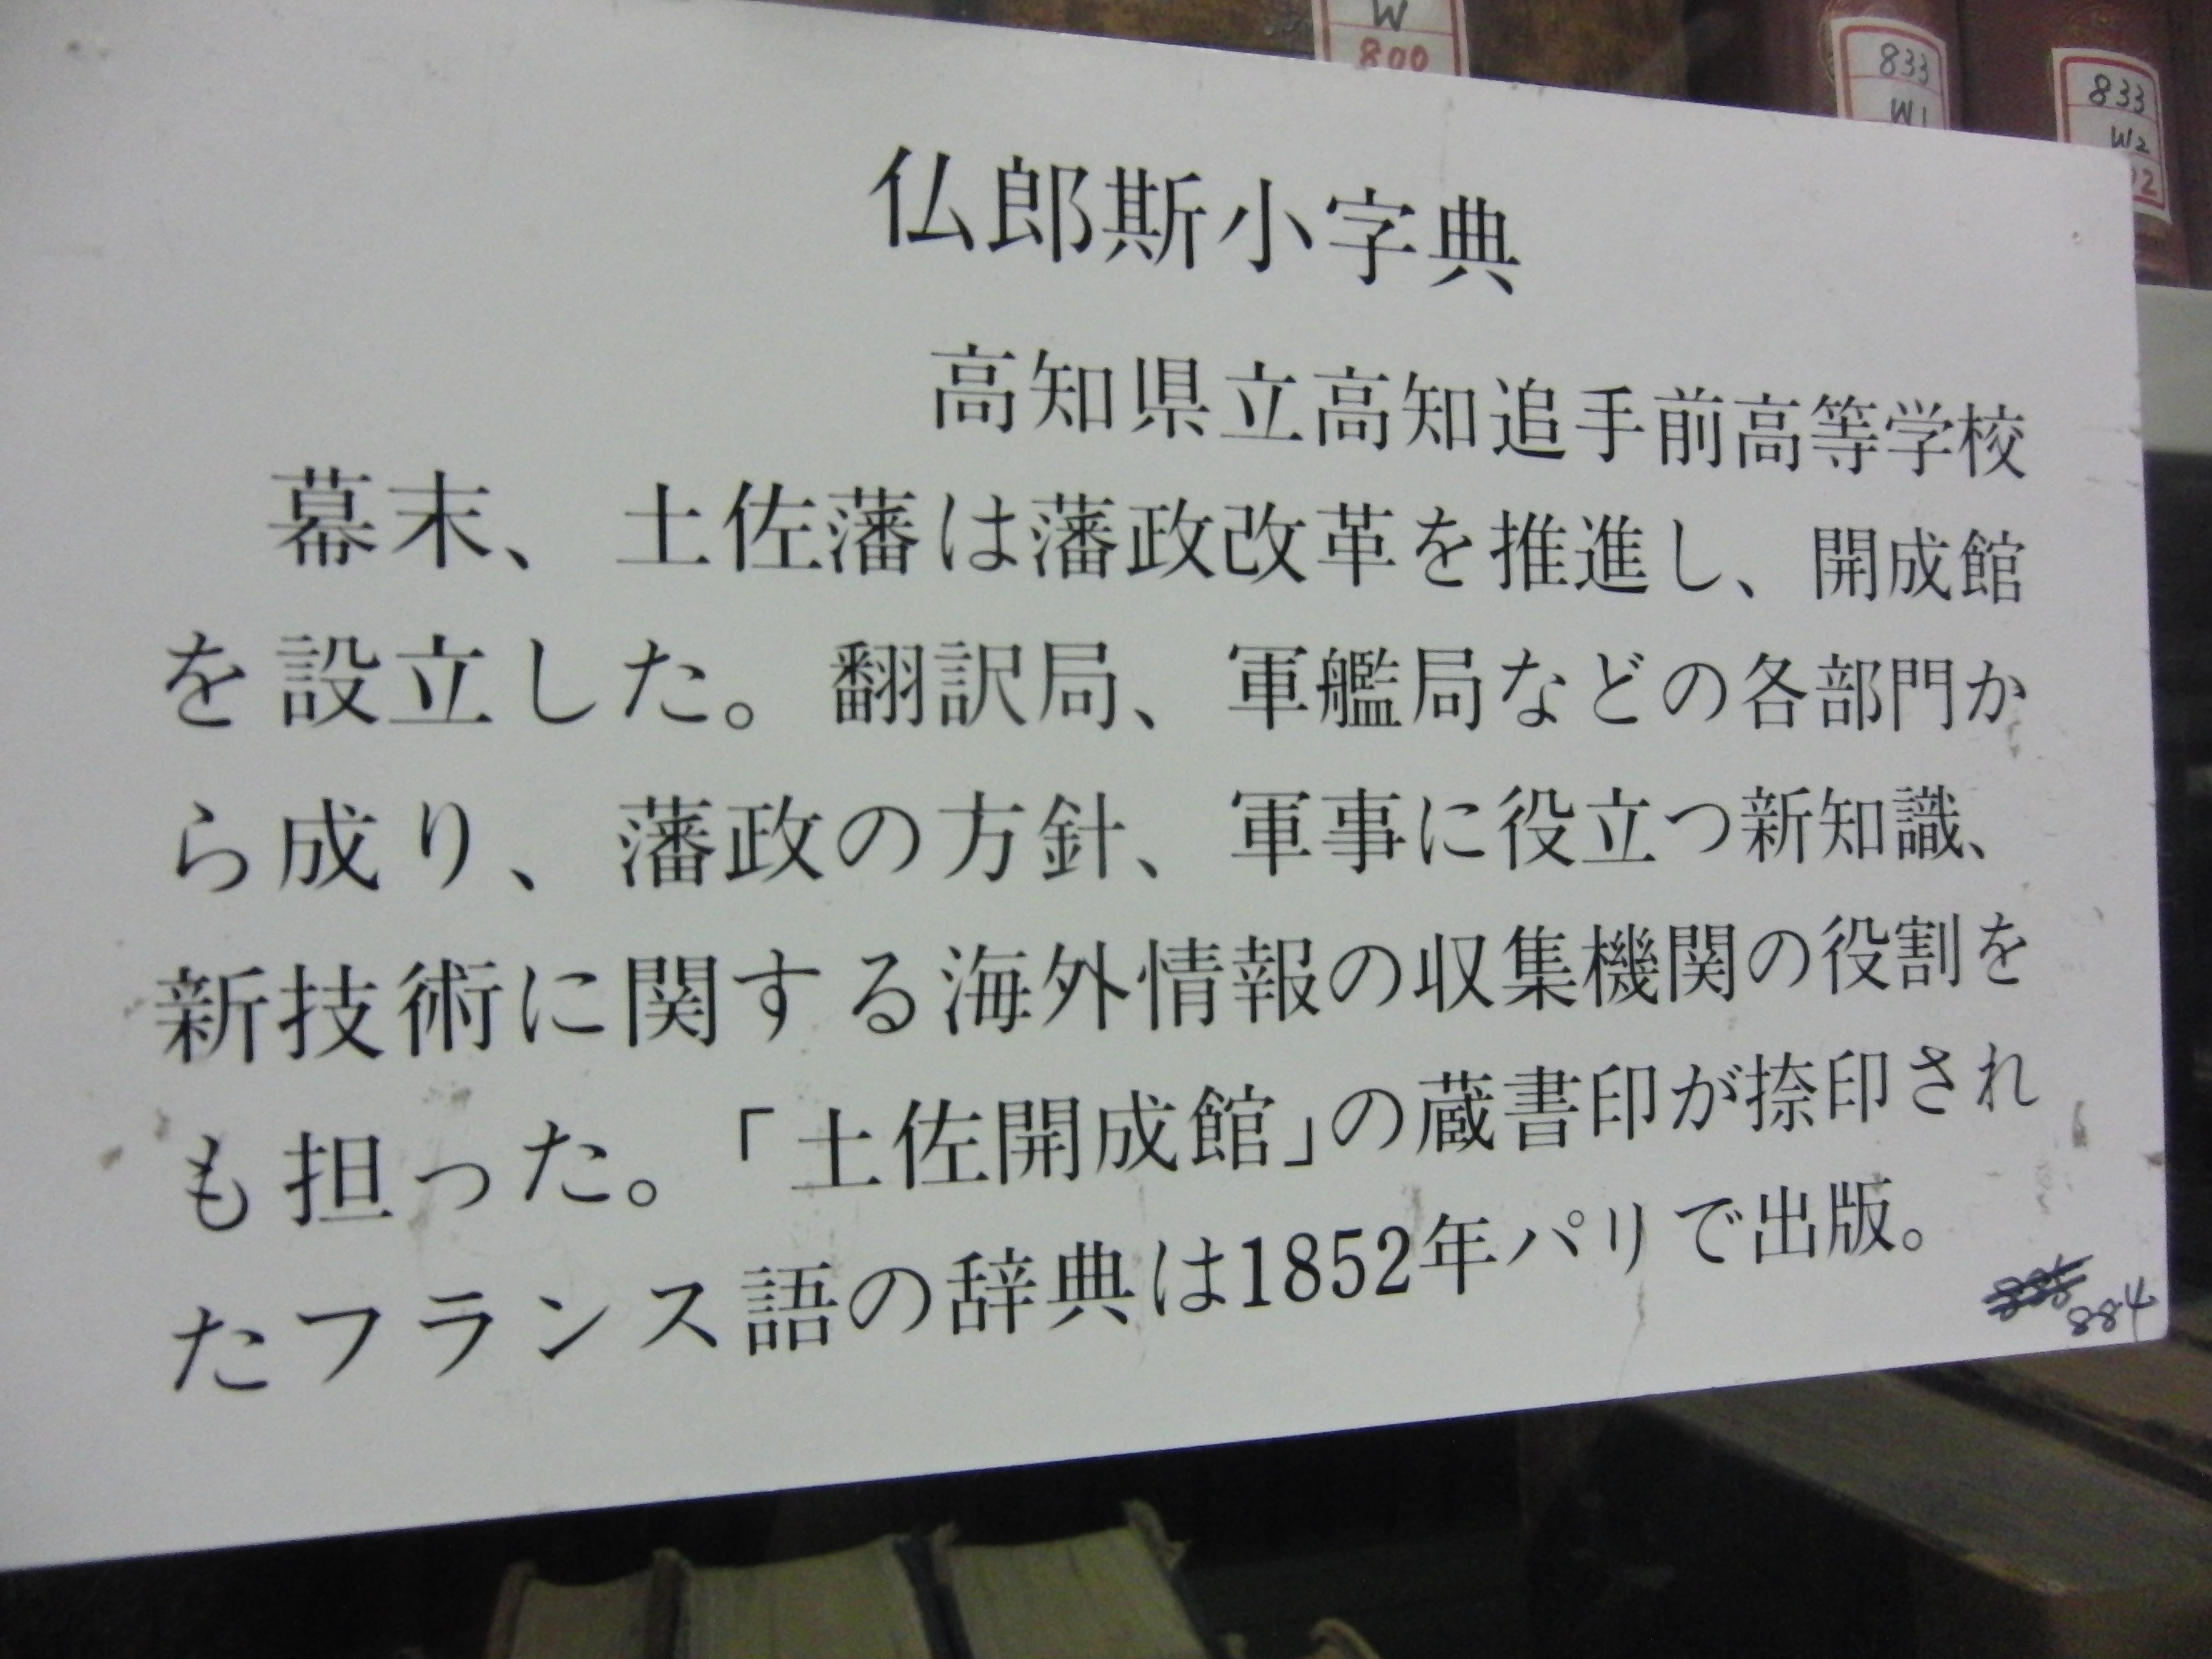 W
800
833
W1
833
W2
仏郎斯小字典
高知県立高知追手前高等学校
幕末、土佐藩は藩政改革を推進し、開成館
を設立した。翻訳局、軍艦局などの各部門か
ら成り、藩政の方針、軍事に役立つ新知識、
新技術に関する海外情報の収集機関の役割を
も担った。「土佐開成館」の蔵書印が捺印され
たフランス語の辞典は1852年パリで出版。
884